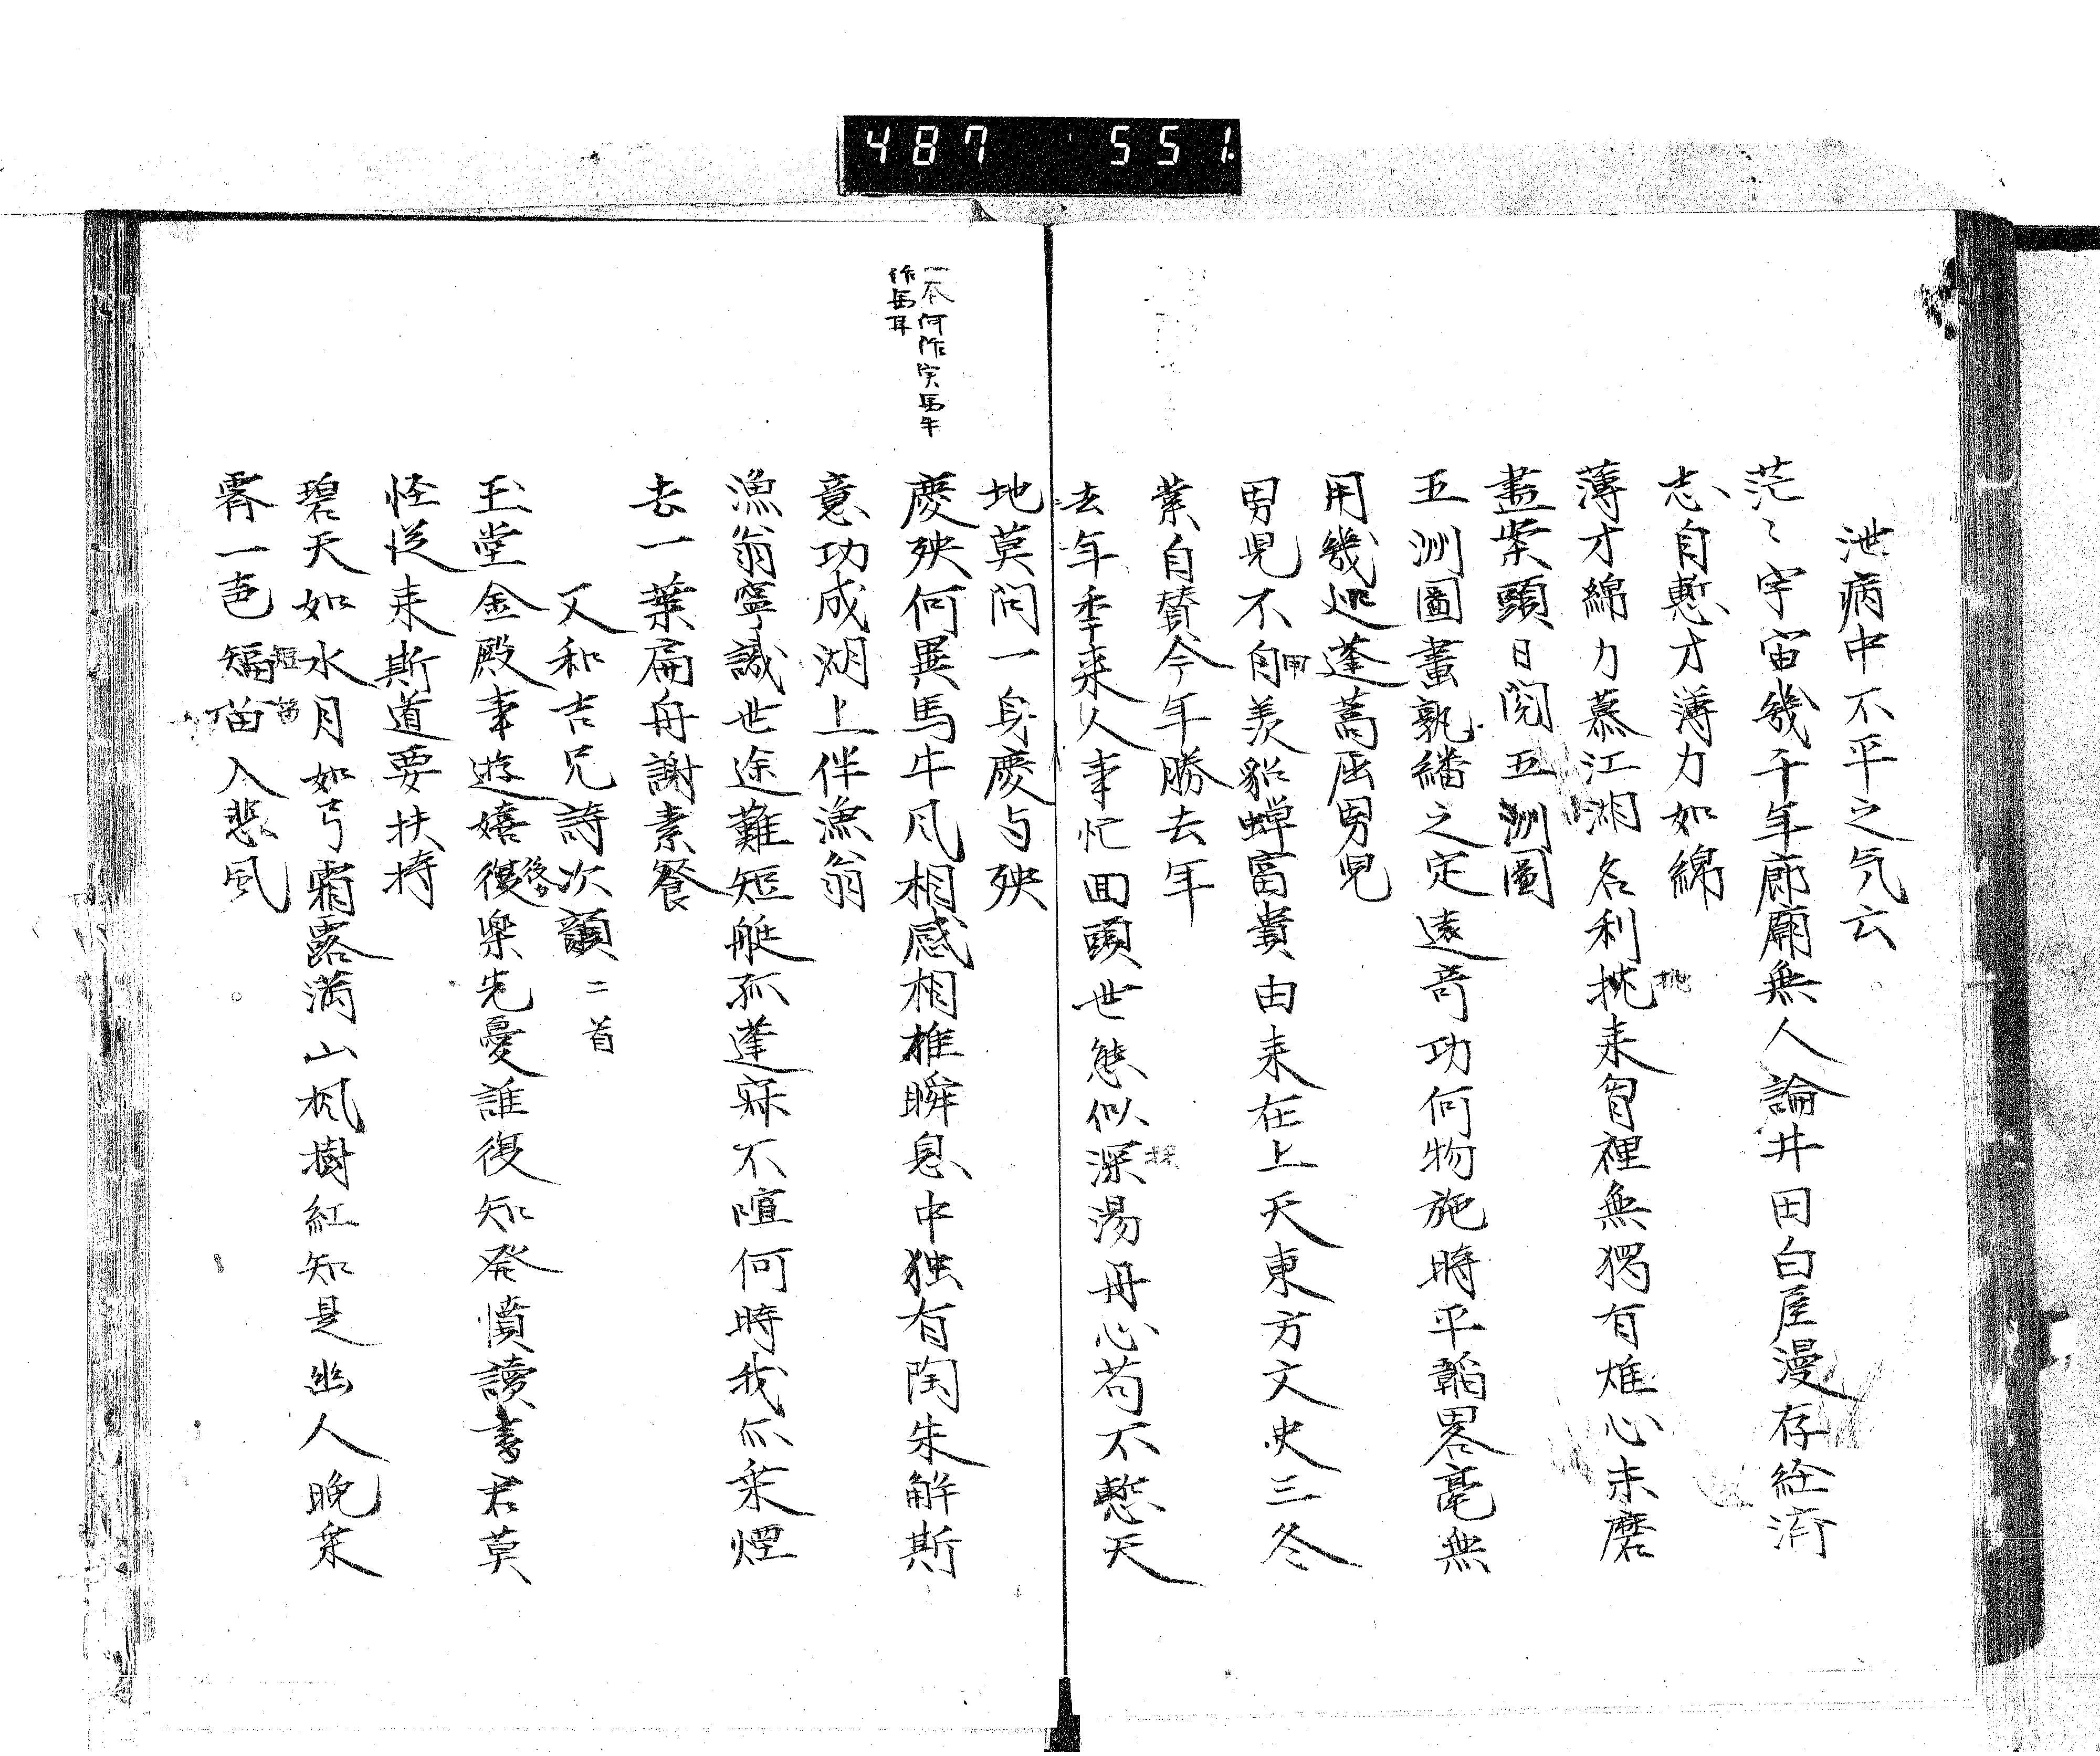 487 551
泄病中不平之气云
茫々宇宙幾千年廊廟無人論井田白屋漫存経済
志自慙才薄力如綿
薄才綿力慕江湖名利挑来胷裡無独有雄心未磨
挑
盡案頭日閲五洲圖
五洲圖畫孰繙之定遠奇功何物施時平韜畧毫無
用幾処蓬蒿屈男児
男児不自羨貂蟬富貴由来在上天東方文史三冬
用
業自賛今年勝去年
去年季来人事忙回頭世態似深湯丹心苟不慙天
探
地莫問一身慶与殃
一本何作実馬牛
作馬耳
慶殃何異馬牛凡相感相推瞬息中独有陶朱解斯
意功成湖上伴漁翁
漁翁寧識世途難短艇孤蓬寐不喧何時我爪乗煙
去一葉扁舟謝素餐
又和吉兄詩次韻二首
玉堂金殿事遊嬉復楽先憂誰復知発憤讀書君莫
後
怪従来斯道要扶持
碧天如水月如弓霜露満山楓樹紅知是幽人晩乗
短笛
霽一声短笛入悲風